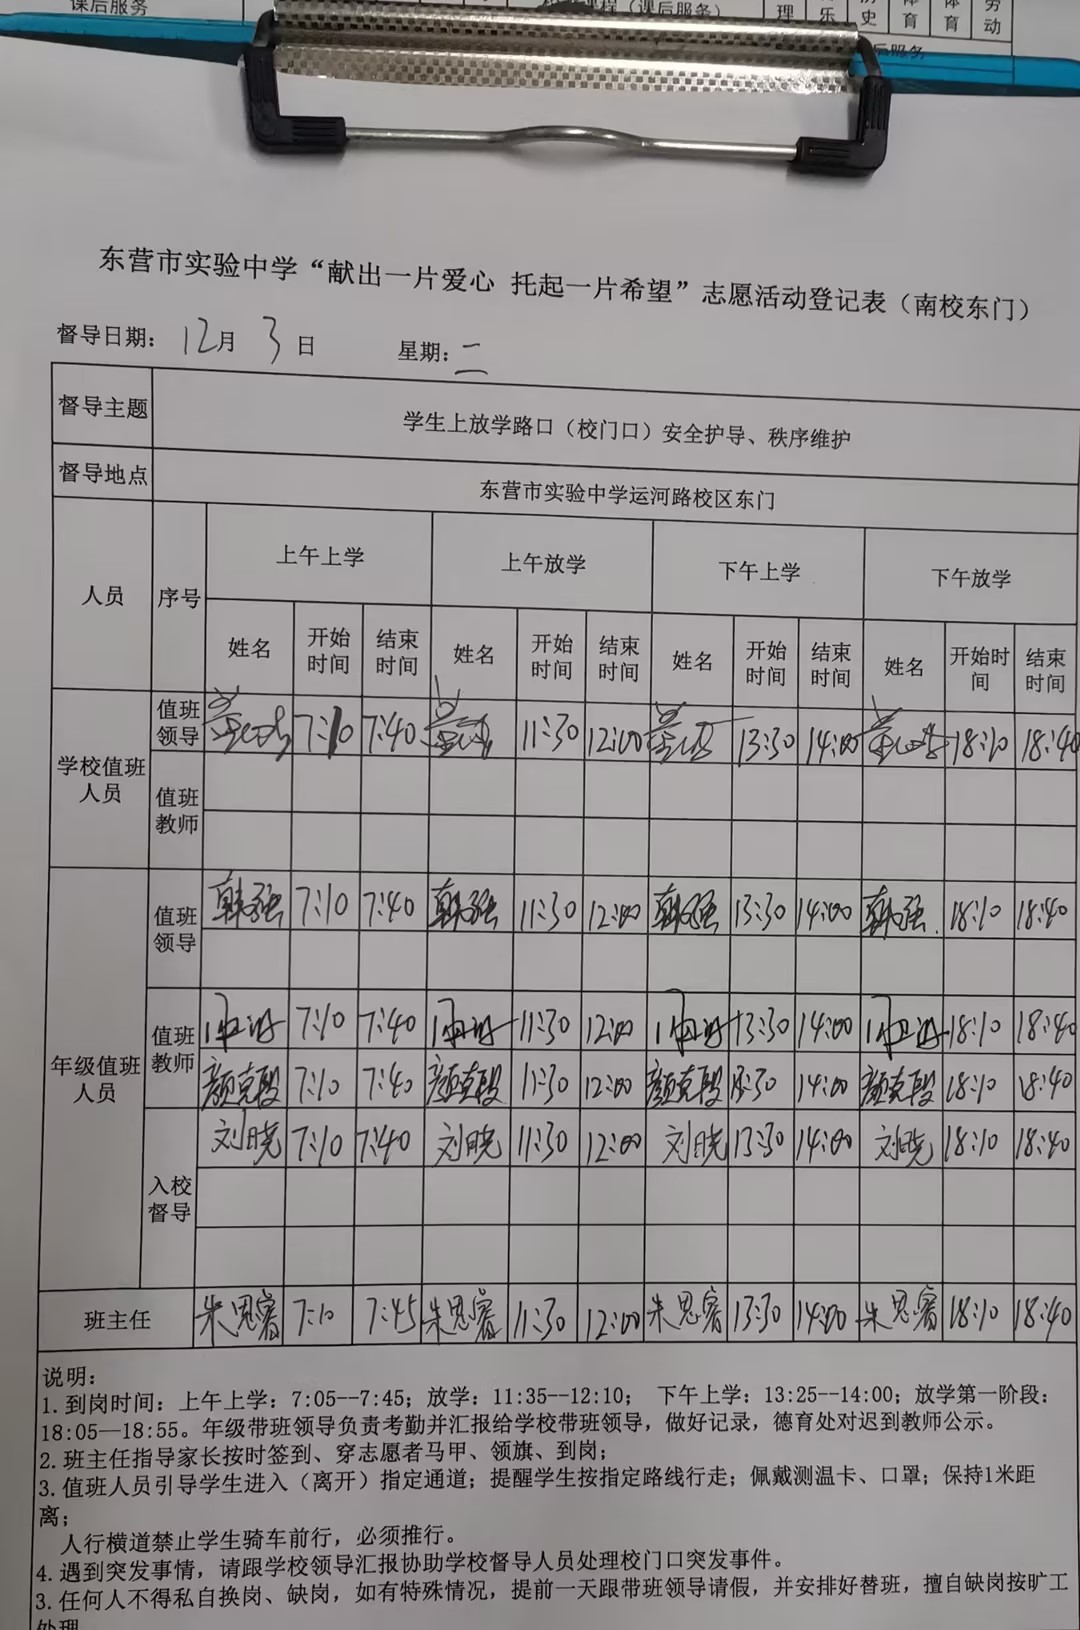 课后服务
（课后服务）
理
乐
历史
体育
体育
劳动
后服务
东营市实验中学“献出一片爱心 托起一片希望”志愿活动登记表（南校东门）
督导日期： 12月 3日 星期：二
督导主题 学生上放学路口（校门口）安全护导、秩序维护
督导地点 东营市实验中学运河路校区东门
人员 序号 上午上学 上午放学 下午上学 下午放学
姓名 开始时间 结束时间 姓名 开始时间 结束时间 姓名 开始时间 结束时间 姓名 开始时间 结束时间
学校值班人员 值班领导 7:10 7:40 11:30 12:00 13:30 14:00 18:10 18:40
值班教师
年级值班人员 值班领导 韩强 7:10 7:40 韩强 11:30 12:00 韩强 13:30 14:00 韩强 18:10 18:40
值班教师 7:10 7:40 11:30 12:00 13:30 14:00 18:10 18:40
颜克段 7:10 7:40 颜克段 11:30 12:00 颜克段 13:30 14:00 颜克段 18:10 18:40
入校督导 刘晓 7:10 7:40 刘晓 11:30 12:00 刘晓 13:30 14:00 刘晓 18:10 18:40
班主任 朱思睿 7:10 7:45 朱思睿 11:30 12:00 朱思睿 13:30 14:00 朱思睿 18:10 18:40
说明：
1.到岗时间：上午上学：7:05--7:45；放学：11:35--12:10； 下午上学：13:25--14:00；放学第一阶段：
18:05—18:55。年级带班领导负责考勤并汇报给学校带班领导，做好记录，德育处对迟到教师公示。
2.班主任指导家长按时签到、穿志愿者马甲、领旗、到岗；
3.值班人员引导学生进入（离开）指定通道；提醒学生按指定路线行走；佩戴测温卡、口罩；保持1米距
离；
人行横道禁止学生骑车前行，必须推行。
4.遇到突发事情，请跟学校领导汇报协助学校督导人员处理校门口突发事件。
3.任何人不得私自换岗、缺岗，如有特殊情况，提前一天跟带班领导请假，并安排好替班，擅自缺岗按旷工
处理